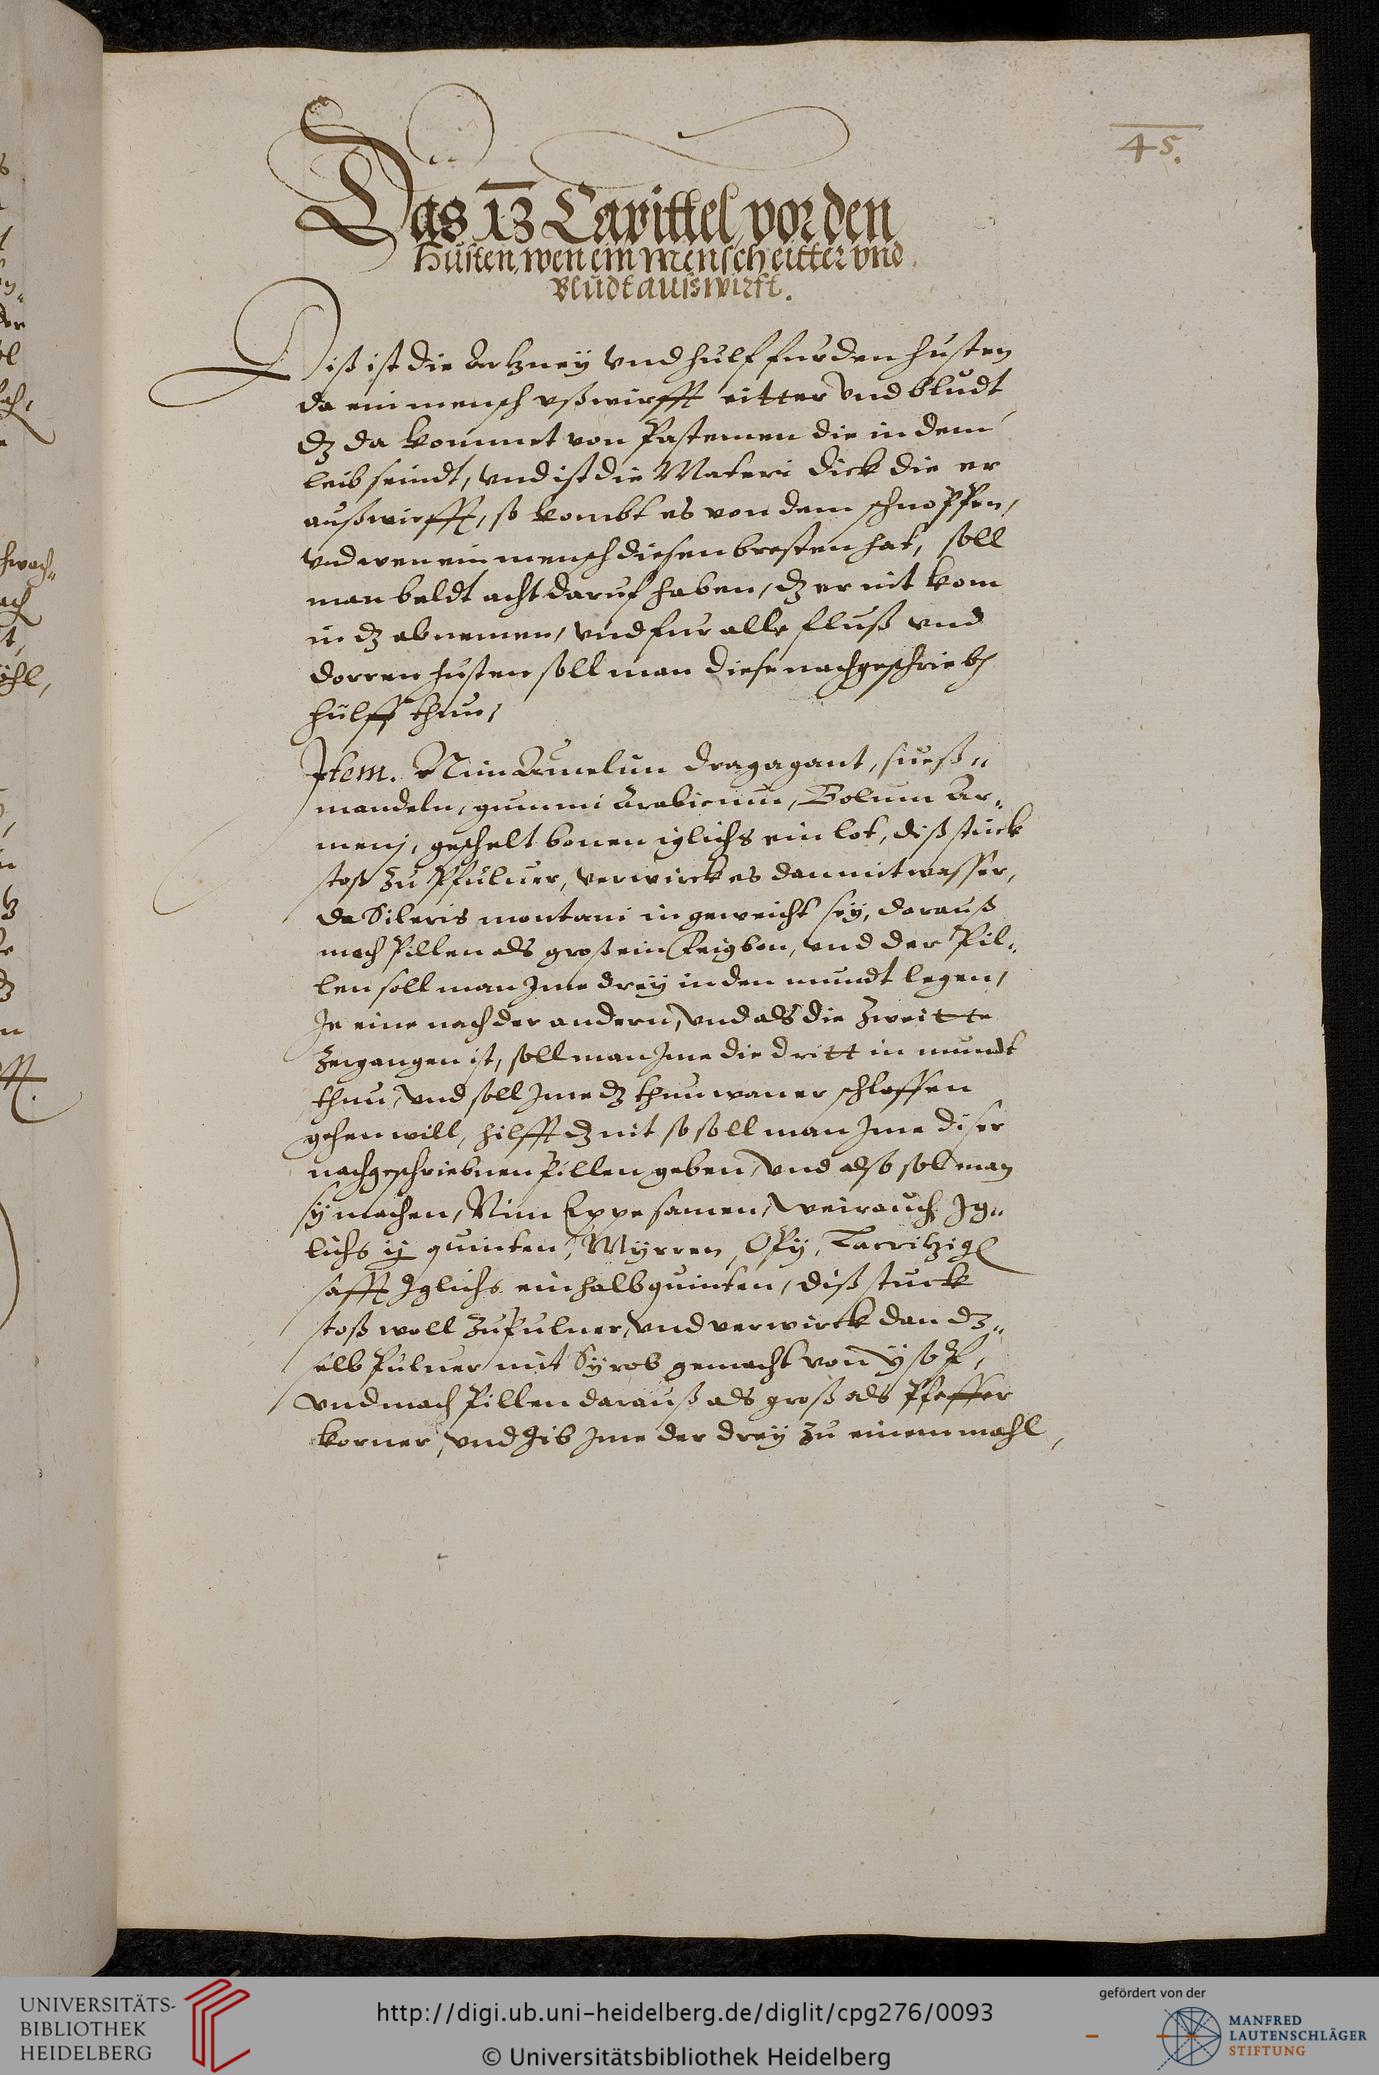 45.
Das 13 Capittel vor den
Husten, wen ein mensch eitter vnd
Bludt auswirft.
Diß ist die Artzney vnd hulf fur den husten
da ein mensch vßwirfft eitter vnd bludt
dz da kommet von Pastemen die in dem
leib seindt, vnd ist die Materi dick die er
außwirfft, so kombt es von dem schnoppen,
vnd wen ein mensch diesen bresten hat, soll
man baldt acht daruf haben, dz er nit kom
in dz abnemen, vnd fur alle fluß vnd
dorren husten soll man diese nachgeschrieb
hülff thun,
Item. Nim Amelum dragagant, sueß„
mandeln, gummi Arabicum, Bolum Ar„
menj, geschelt bonen iglichs ein lot, diß stuck
stoß zu Pfuluer, verwirck es dan mit wasser,
da Sileris montani in geweicht sey, darauß
mach Pillen als groß ein feigbon, vnd der Pil„
len soll man Jme drey in den mundt legen,
Je eine nach der andern, vnd als die zweitte
zergangen ist, soll man Jme die dritt in mundt
thun, vnd soll Jme dz thun wan er schloffen
gehen will, hilfft dz nit so soll man Jme diser
nachgeschriebnen Pillen geben, vnd also sol man
sy machen, Nim Eppe samen, weirauch Jg„
lichs ij quinten, Myrren, Opy, Lacritzig
safft Jglichs ein halb quinten, diß stuck
stoß woll zu Puluer, vnd verwirck dan dz„
selb Puluer mit Syrob gemacht von ysop,
vnd mach Pillen darauß als groß als Pfeffer
korner, vnd Gib Jme der drey zu einem mahl,
UNIVERSITÄTS-
BIBLIOTHEK
HEIDELBERG
http://digi.ub.uni-heidelberg.de/diglit/cpg276/0093
© Universitätsbibliothek Heidelberg
gefördert von der
MANFRED
LAUTENSCHLÄGER
STIFTUNG